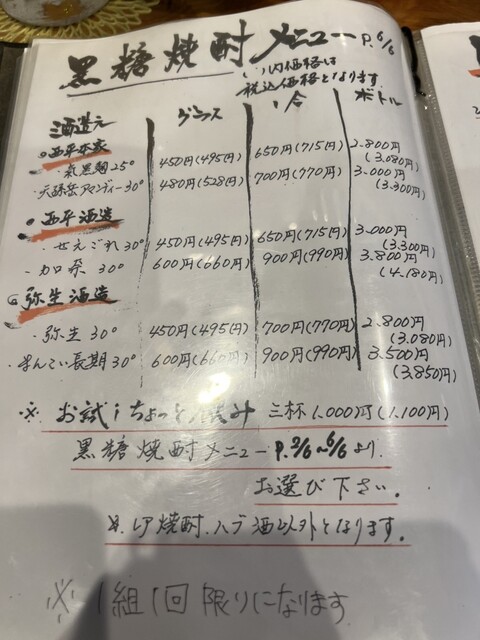 黒糖焼酎メニュー P.6/6
( )内価格は
税込価格となります。
酒造元 グラス 一合 ボトル
西平本家
・氣黒麹25° 450円(495円) 650円(715円) 2.800円(3.080円)
30° 480円(528円) 700円(770円) 3.000円(3.300円)
西平酒造
・せえごれ30° 450円(495円) 650円(715円) 3.000円(3.300円)
・加那 30° 600円(660円) 900円(990円) 3.800円(4.180円)
弥生酒造
・弥生30° 450円(495円) 700円(770円) 2.800円(3.080円)
・まんこい長期30° 600円(660円) 900円(990円) 3.500円(3.850円)
※ お試しちょっと飲み 三杯1.000円(1.100円)
黒糖焼酎メニューP.2/6~6/6より
お選び下さい。
※レア焼酎、ハブ酒以外となります。
※ 1組1回限りになります